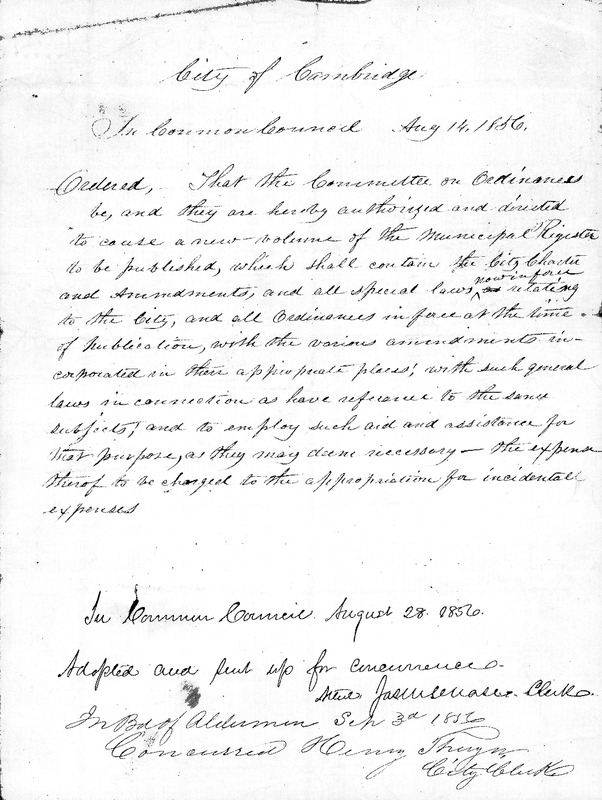 City of Cambridge
In Common Council Aug 14, 1856.
Ordered, That the Committee on Ordinances
be, and they are hereby authorized and directed
to cause a new volume of the Municipal Register
to be published, which shall contain the City Charter
and Amendments, and all special laws now in force relating
to the City, and all Ordinances in force at the time
of Publication, with the various amendments in-
corporated in their appropriate places; with such general
laws in connection as have reference to the same
subjects; and to employ such aid and assistance for
that purpose, as they may deem necessary — the expense
therof to be charged to the appropriation for incidentall
expenses
In Common Council. August 28. 1856.
Adopted and sent up for concurrence.
Attest Clerk.
In Bd of Aldermen Sep 3d 1856
Concurred Henry Thayer
City Clerk